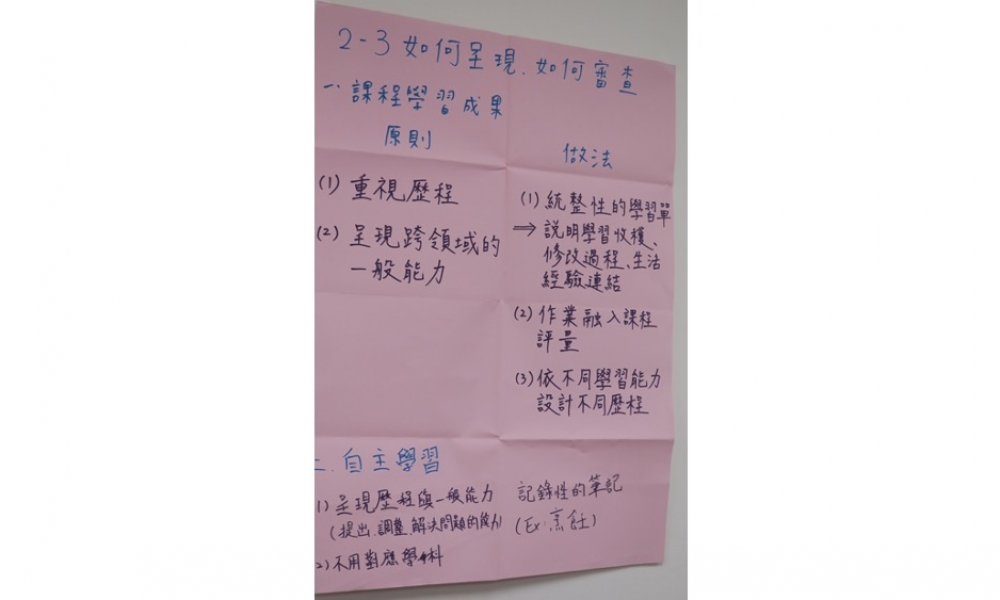 2-3 如何呈現、如何審查
一、課程學習成果
原則
(1) 重視歷程
(2) 呈現跨領域的
一般能力
做法
(1) 統整性的學習單
⇒ 說明學習收穫、
修改過程、生活
經驗連結
(2) 作業融入課程
評量
(3) 依不同學習能力
設計不同歷程
二、自主學習
(1) 呈現歷程與一般能力
(提出、調整、解決問題的能力)
(2) 不用對應學科
記錄性的筆記
(Ex. 烹飪)